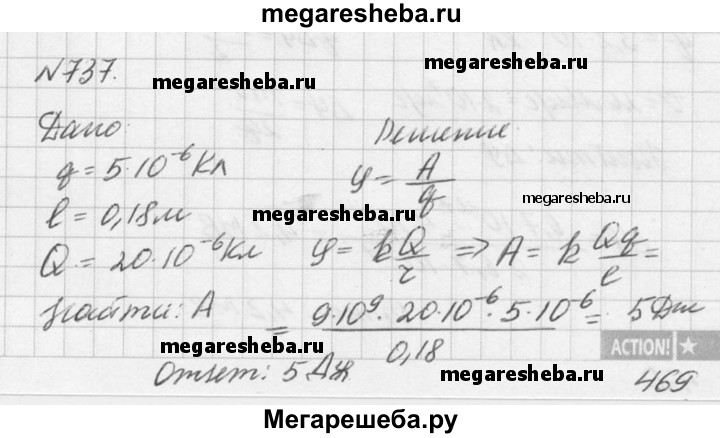 megaresheba.ru
N737.
megaresheba.ru
megaresheba.ru
Дано:
Решение:
q = 5·10⁻⁶ Кл
φ = A/q
megaresheba.ru
l = 0,18 м
megaresheba.ru
Q = 20·10⁻⁶ Кл
φ = kQ/r ⇒ A = k Qq/l =
Найти: A
= 9·10⁹·20·10⁻⁶·5·10⁻⁶/0,18 = 5 Дж
megaresheba.ru
ACTION!
Ответ: 5 Дж
megaresheba.ru
469
Мегарешеба.ру